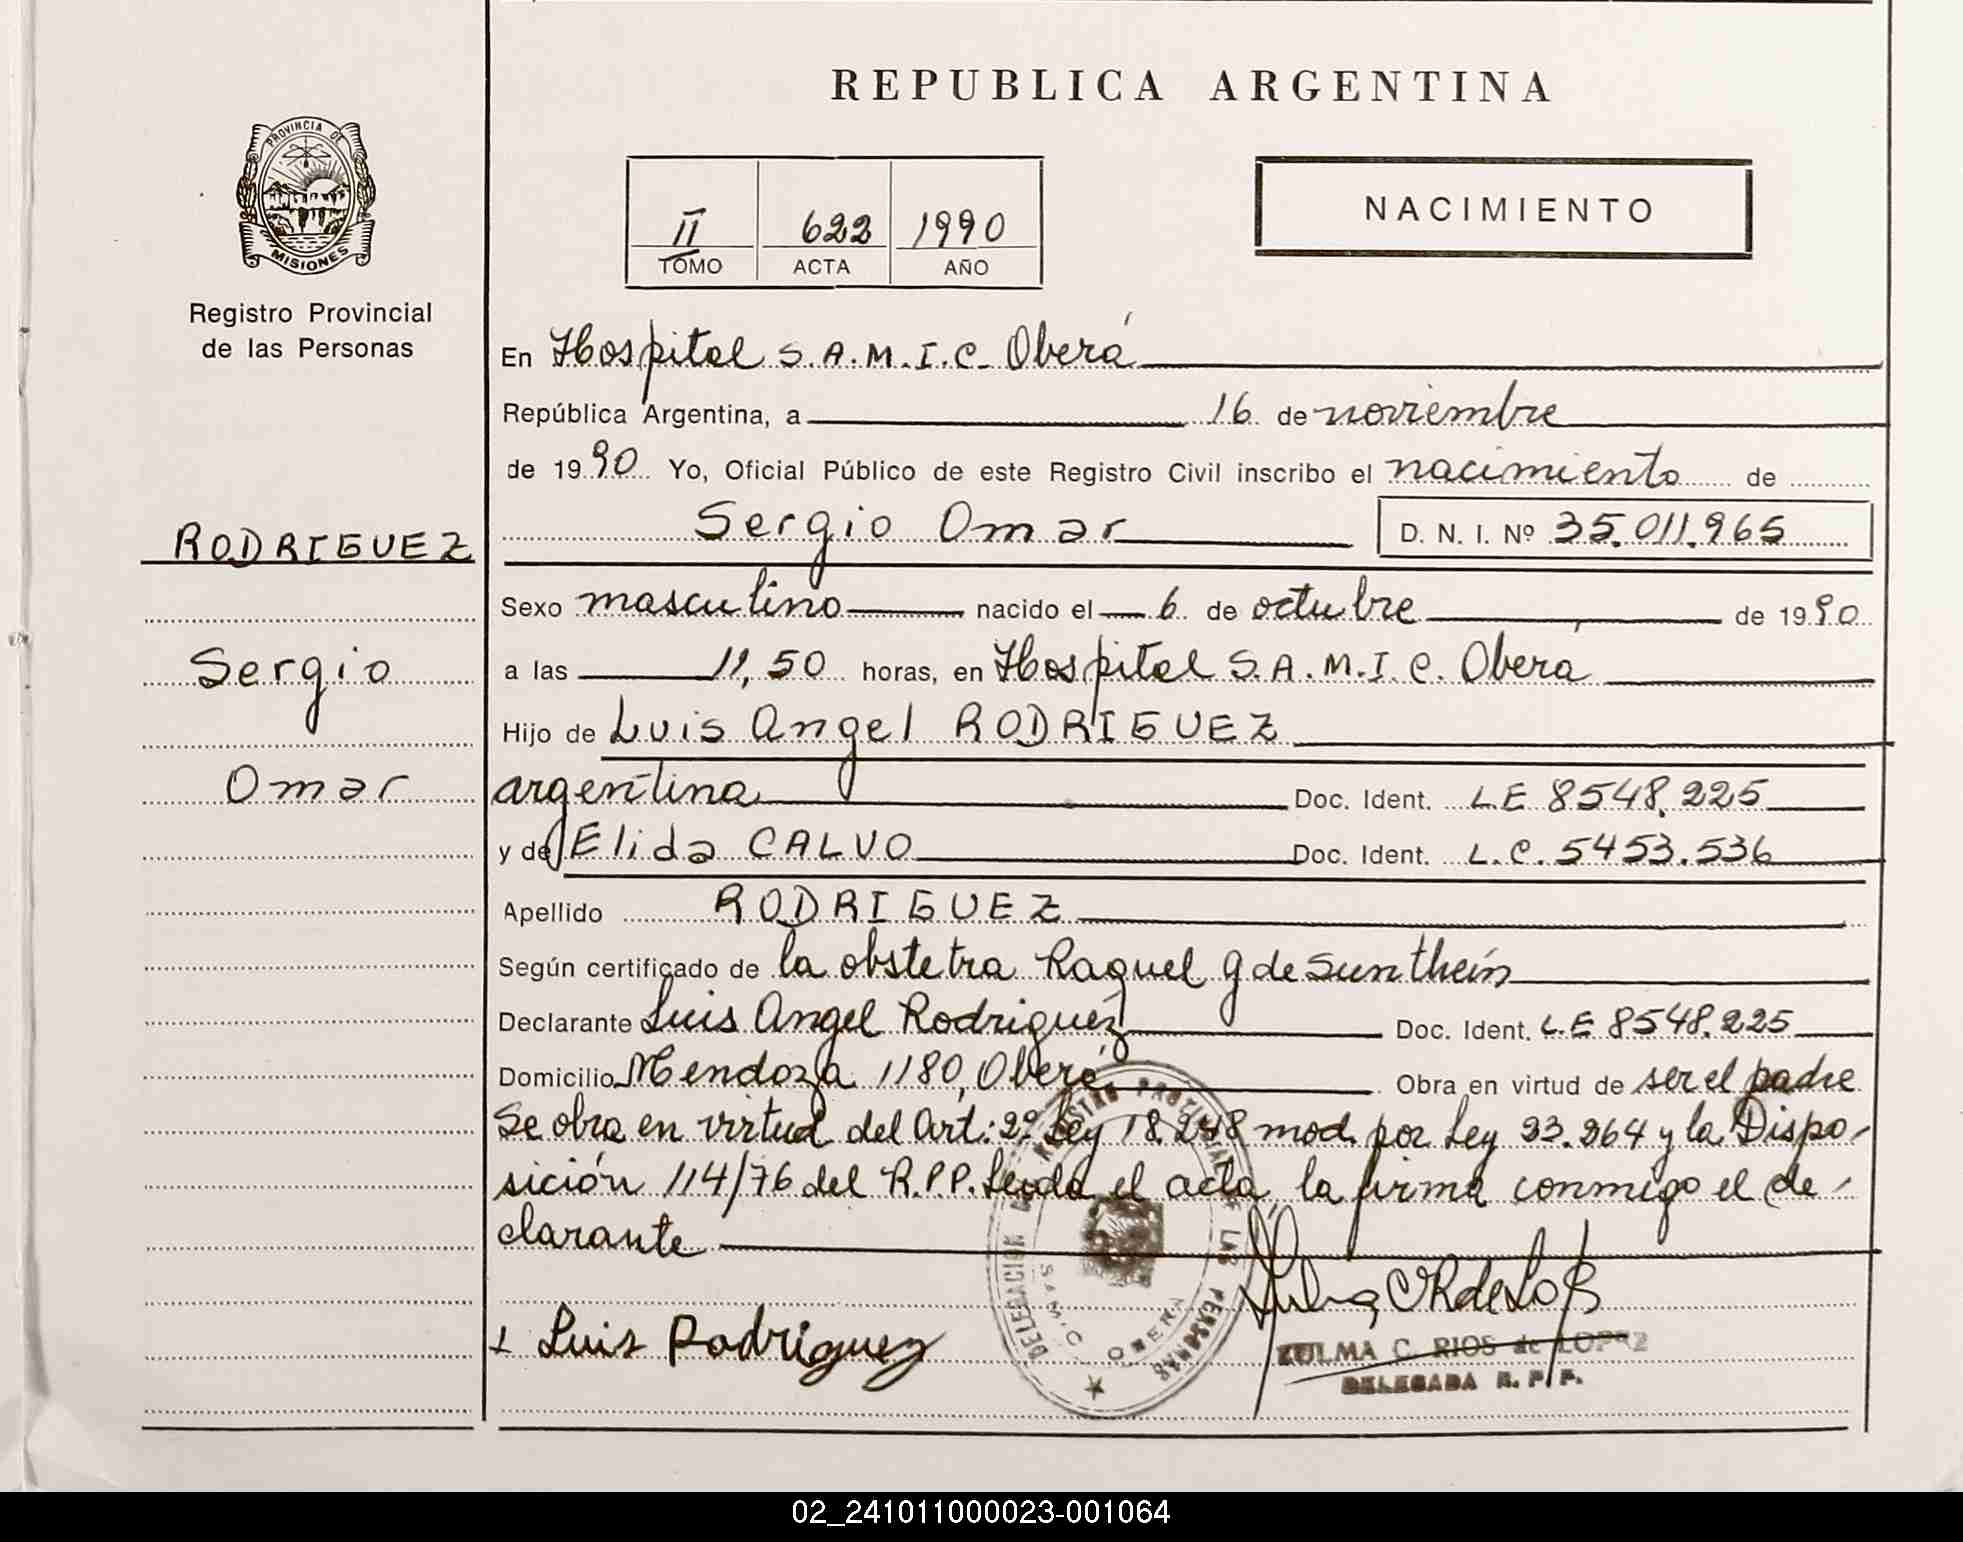 REPUBLICA ARGENTINA
PROVINCIA DE
MISIONES
Registro Provincial
de las Personas
II 622 1990
TOMO ACTA AÑO
NACIMIENTO
En Hospital S.A.M.I.C. Oberá
República Argentina, a 16 de noviembre
de 1990 Yo, Oficial Público de este Registro Civil inscribo el nacimiento de
Sergio Omar D. N. I. Nº 35.011.965
RODRIGUEZ
Sergio
Omar
Sexo masculino nacido el 6 de octubre de 1990
a las 11,50 horas, en Hospital S.A.M.I.C. Oberá
Hijo de Luis Angel RODRIGUEZ
argentina Doc. Ident. L.E 8548.225
y de Elida CALVO Doc. Ident. L.C. 5453.536
Apellido RODRIGUEZ
Según certificado de la obstetra Raquel G de Sunthein
Declarante Luis Angel Rodriguez Doc. Ident. L.E 8548.225
Domicilio Mendoza 1180, Oberá Obra en virtud de ser el padre
Se obra en virtud del Art: 2º Ley 18.248 mod. por Ley 23.264 y la Dispo-
sición 114/76 del R.P.P. Leida el acta, la firma conmigo el de-
clarante
Luis Rodriguez
DELEGACION REGISTRO PROVINCIAL DE LAS PERSONAS
S.A.M.I.C. OBERA
ZULMA C. RIOS de LOPEZ
DELEGADA R. P. P.
02_241011000023-001064